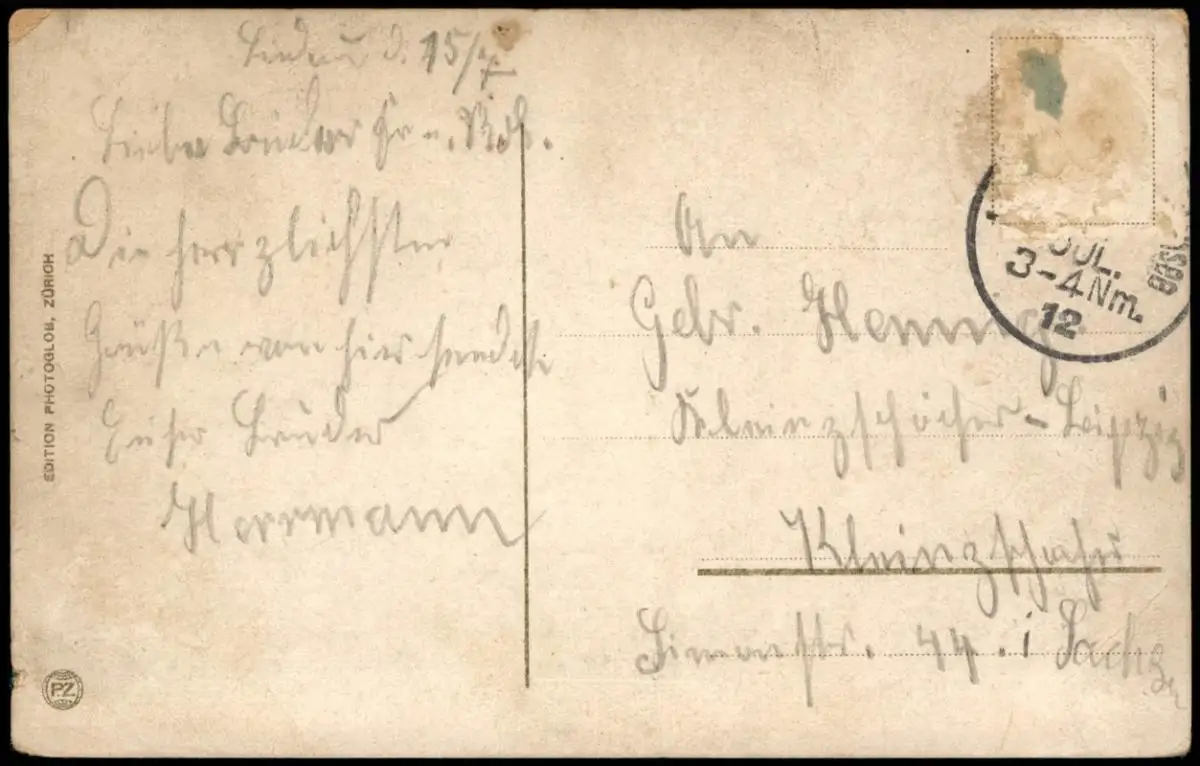 Lindau d. 15/7
Liebe Brüder Fr u.
Die herrzlichsten
Grüße von hier sendet
Euher Bruder
Herrmann
EDITION PHOTOGLOB, ZÜRICH
PZ
JUL.
3-4Nm.
12
An
Gebr. Hennig
Kleinzschocher-Leipzig
Kleinzschocher
Simonstr. 44. i Sachsen